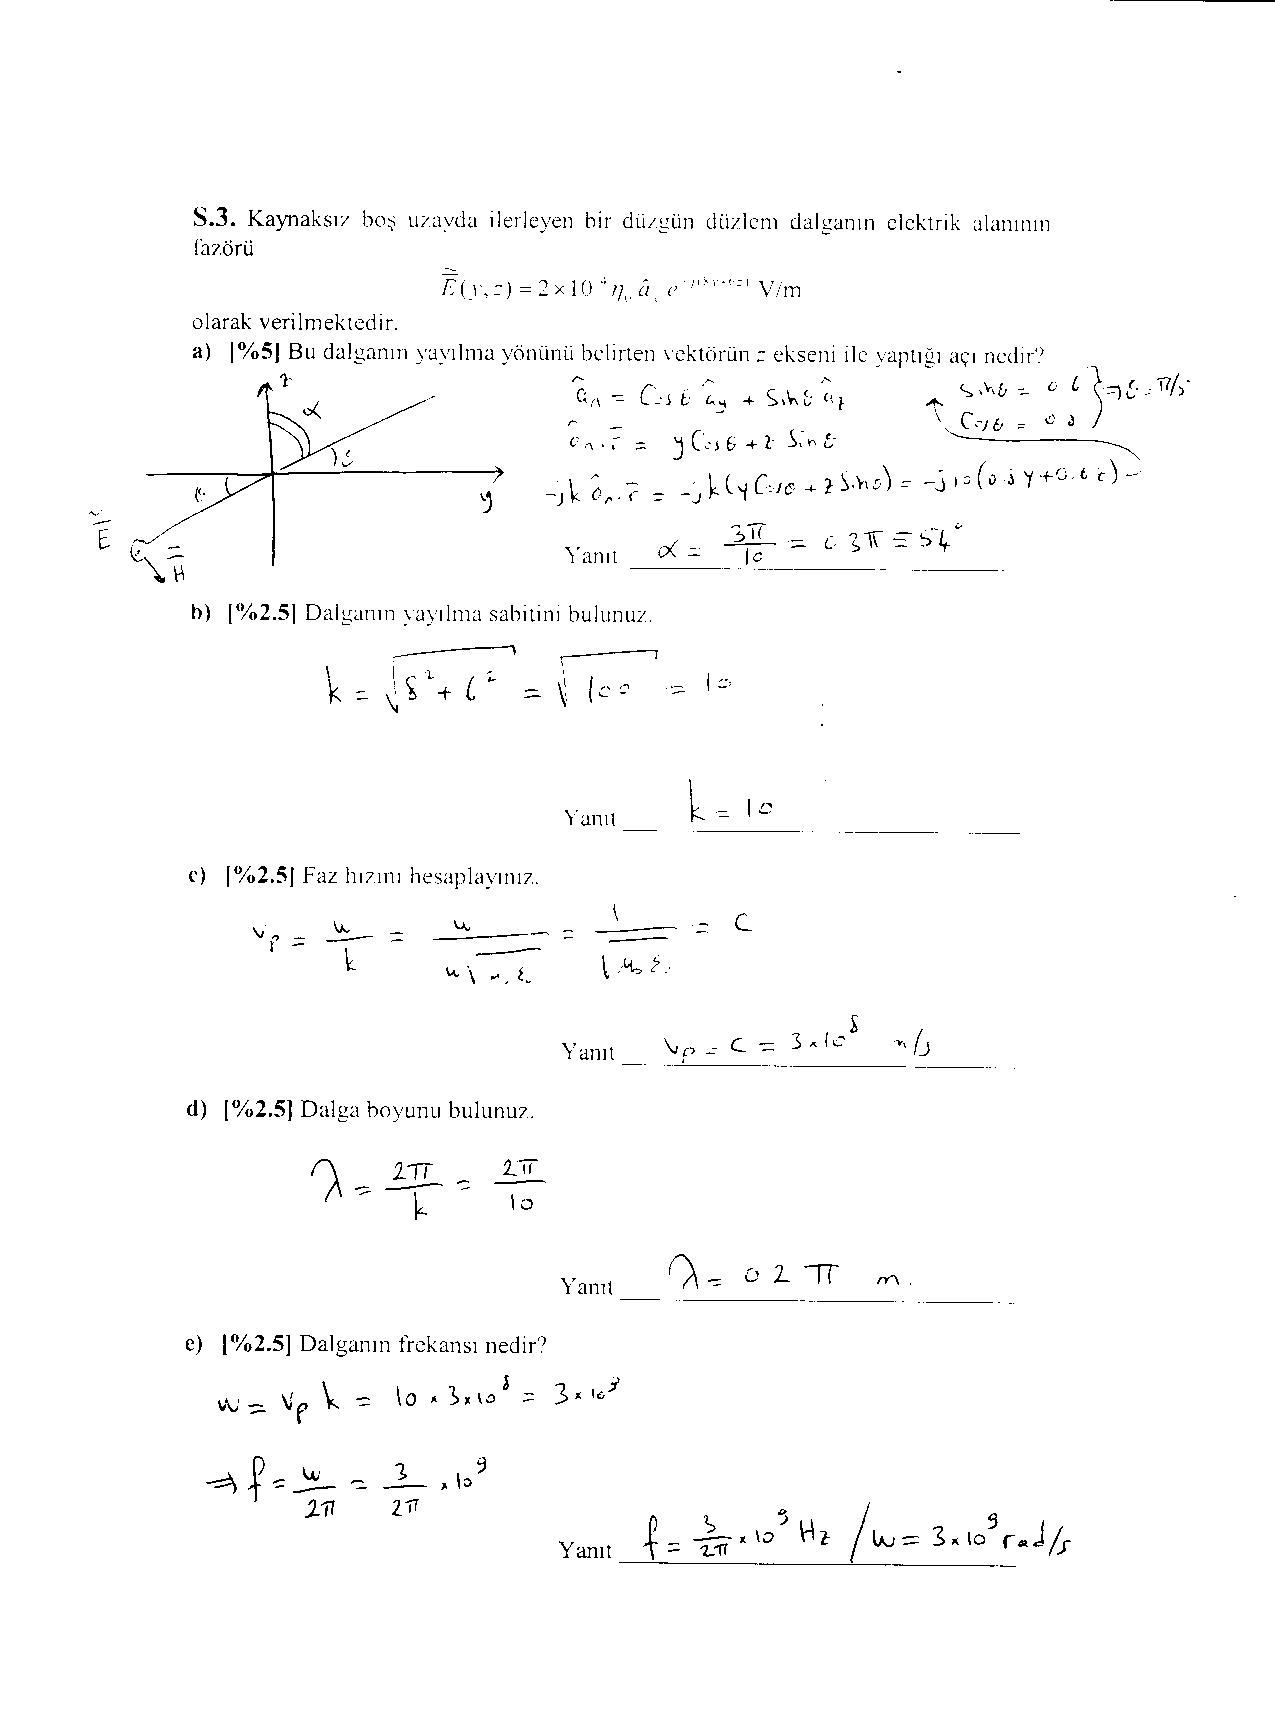 S.3. Kaynaksız boş uzayda ilerleyen bir düzgün düzlem dalganın elektrik alanının
fazörü
E(y,z) = 2×10 η₀ â e V/m
olarak verilmektedir.
a) [%5] Bu dalganın yayılma yönünü belirten vektörün z ekseni ile yaptığı açı nedir?
z
α
y
E
H
â = Cosθ â_y + Sinθ â_z
Sinθ = 0.6 } ⇒ θ = π/5
Cosθ = 0.8
â_n · r = y Cosθ + z Sinθ
-jk â_n · r = -jk(y Cosθ + z Sinθ) = -j10(0.8 y + 0.6 z)
Yanıt α = 3π/10 = 0.3π ≡ 54°
b) [%2.5] Dalganın yayılma sabitini bulunuz.
k = √(8² + 6²) = √100 = 10
Yanıt k = 10
c) [%2.5] Faz hızını hesaplayınız.
v_p = w/k = w/(w√μ₀ε₀) = 1/√μ₀ε₀ = c
Yanıt v_p = c = 3×10⁸ m/s
d) [%2.5] Dalga boyunu bulunuz.
λ = 2π/k = 2π/10
Yanıt λ = 0.2 π m.
e) [%2.5] Dalganın frekansı nedir?
w = v_p k = 10 × 3×10⁸ = 3×10⁹
⇒ f = w/2π = 3/2π ×10⁹
Yanıt f = 3/2π ×10⁹ Hz / w = 3×10⁹ rad/s